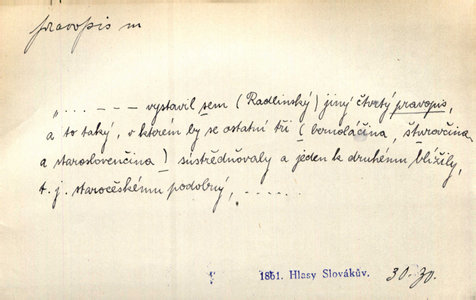 pravopis m
"... - - - vystavil sem (Radlinský) jiný čtvrtý pravopis,
a to taký, v kterém by se ostatní tři (bernoláčina, šturovčina
a staroslovenčina) sústředňovaly a jeden k druhému blížily,
t. j. staročeskému podobný, .......
1851. Hlasy Slovákův. 30-